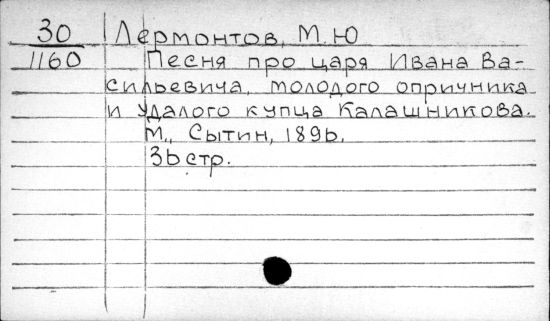 30 Лермонтов, М.Ю
1160 Песня про царя Ивана Ва-
сильевича, молодого опричника
и удалого купца Калашникова.
М., Сытин, 1896.
36 стр.